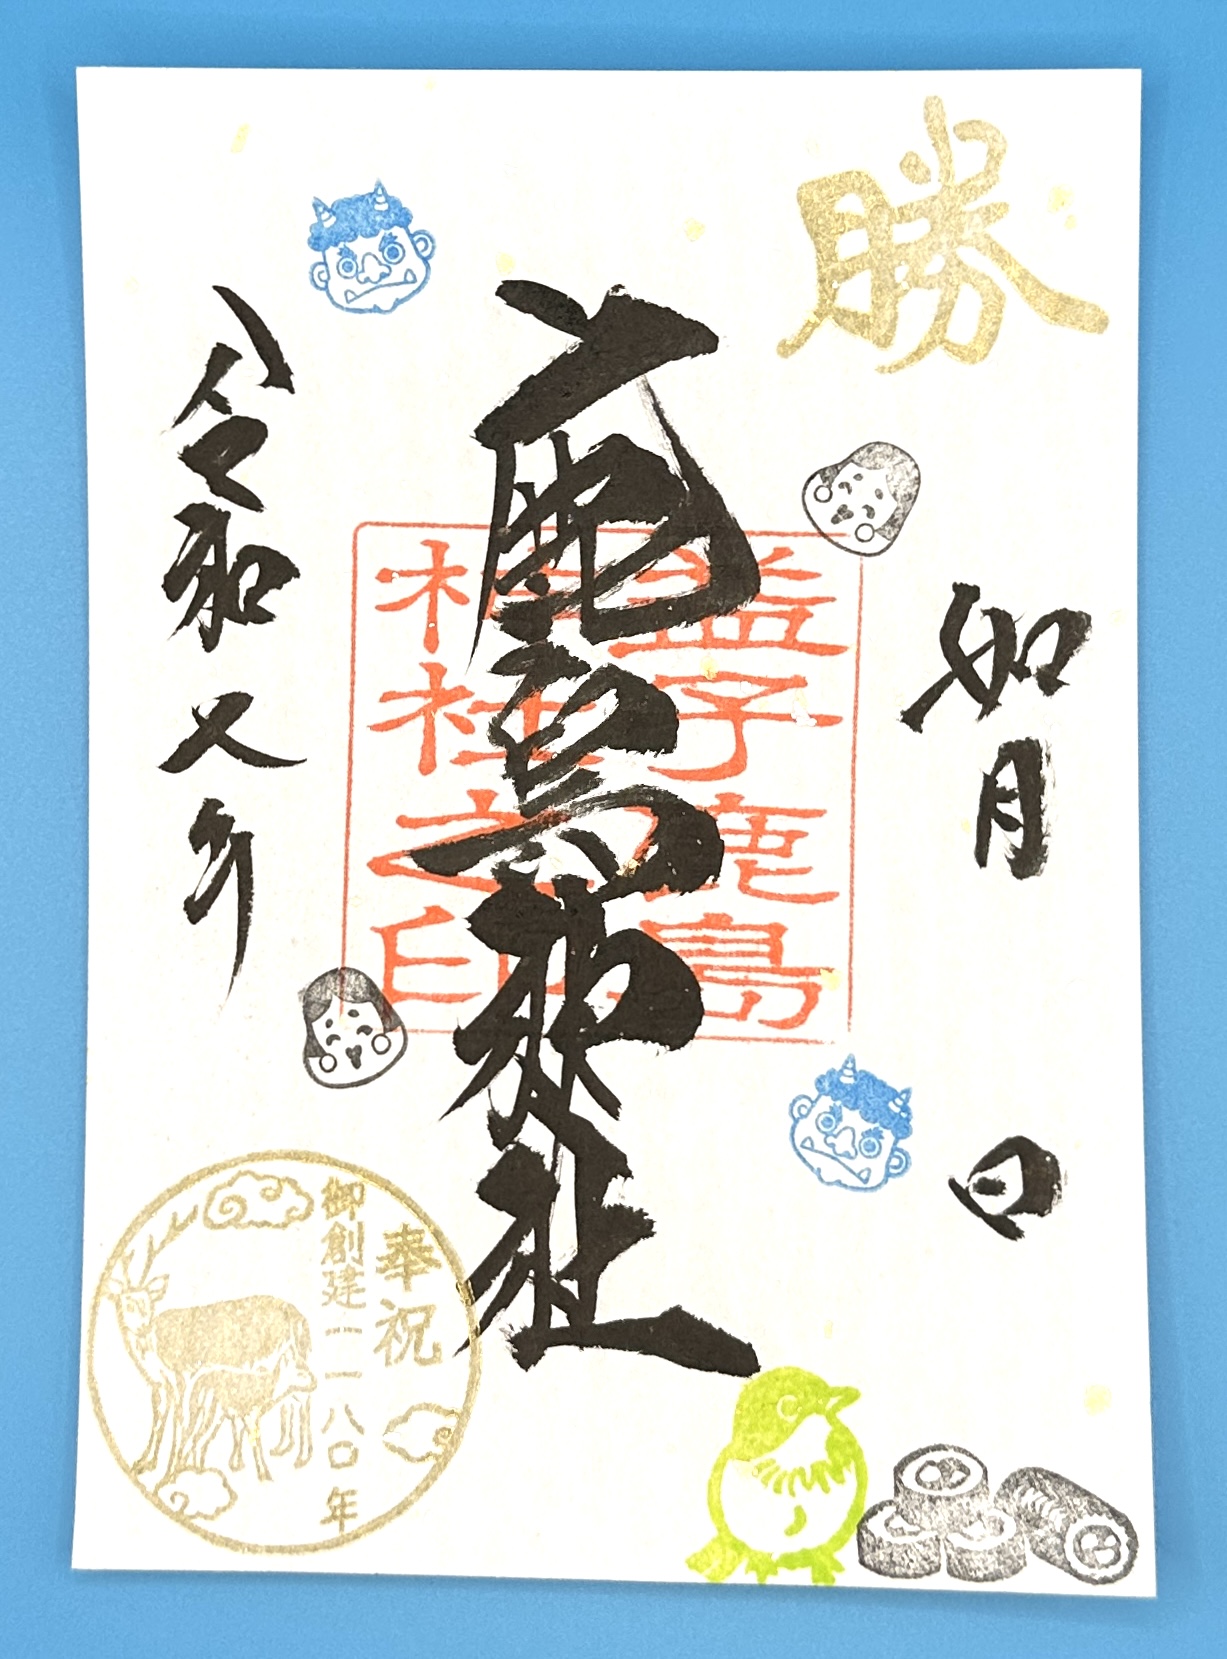 勝
如月 日
鹿島神社
益子鹿島
神社之印
令和七年
奉祝
御創建一一八〇年